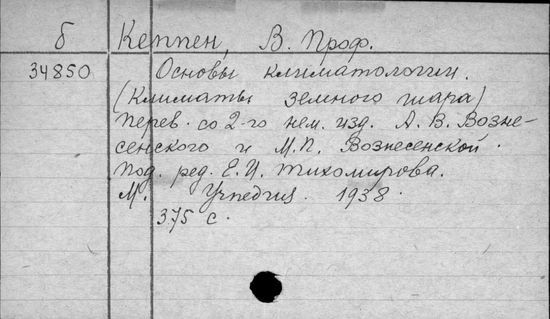 б Кеппен, В. Проф.
34850 Основы климатологии.
(Климаты земного шара)
Перев. со 2-го нем. изд. А. В. Возне-
сенского и М.П. Вознесенской.
Под. ред. Е. И. Тихомирова.
М. Учпедгиз 1938.
375 с.